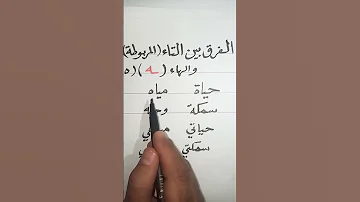 الفرق بين التاء (المربوطة)
والهاء (ـه) (ه)
حياة مياه
سمكة
حياتي
سمكتي